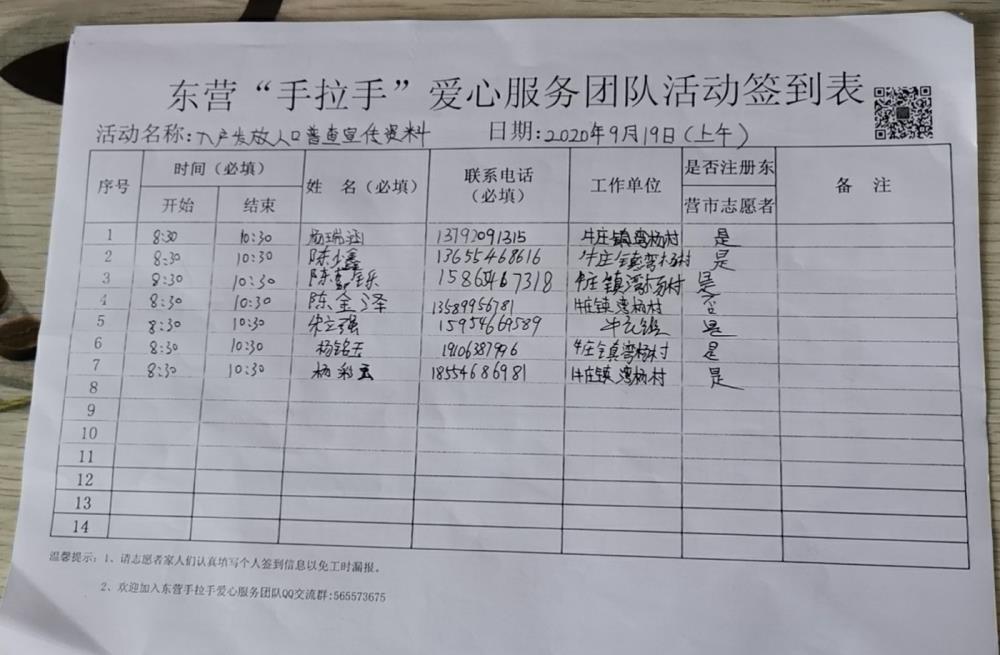 东营“手拉手”爱心服务团队活动签到表
活动名称:入户发放人口普查宣传资料 日期:2020年9月19日(上午)
序号 时间(必填) 姓 名(必填) 联系电话(必填) 工作单位 是否注册东营市志愿者 备 注
开始 结束
1 8:30 10:30 杨瑞涵 13792091315 牛庄镇弯杨村 是
2 8:30 10:30 陈小鑫 13655468616 牛庄镇弯杨村 是
3 8:30 10:30 陈 乐 15865467318 牛庄镇湾杨村 是
4 8:30 10:30 陈金泽 13589956781 牛庄镇湾杨村 否
5 8:30 10:30 宋立强 15954669589 牛庄镇 是
6 8:30 10:30 杨铭玉 牛庄镇弯杨村 是
7 8:30 10:30 杨彩玉 18554686981 牛庄镇湾杨村 是
8
9
10
11
12
13
14
温馨提示:1、请志愿者家人们认真填写个人签到信息以免工时漏报。
2、欢迎加入东营手拉手爱心服务团队QQ交流群:565573675